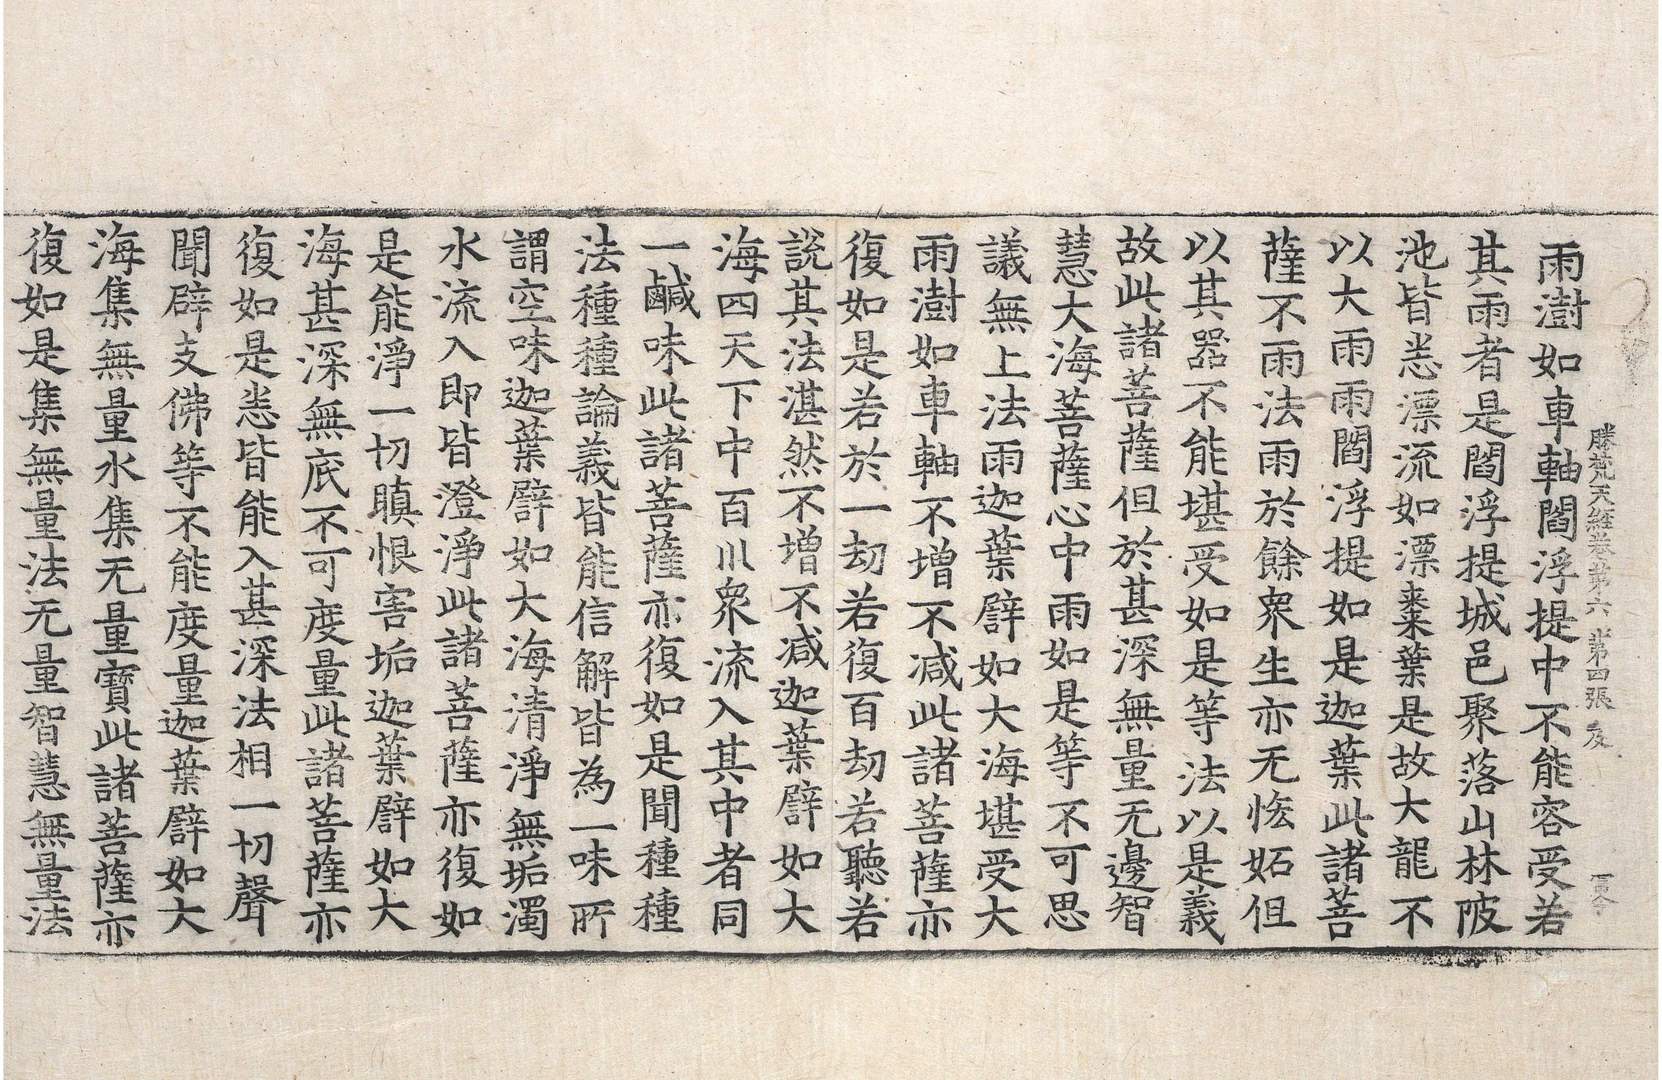 勝梵天經卷第六 第四張 友
雨澍如車軸閻浮提中不能容受若
其雨者是閻浮提城邑聚落山林陂
池皆悉漂流如漂棗葉是故大龍不
以大雨雨閻浮提如是迦葉此諸菩
薩不雨法雨於餘衆生亦无悋妬但
以其器不能堪受如是等法以是義
故此諸菩薩但於甚深無量无邊智
慧大海菩薩心中雨如是等不可思
議無上法雨迦葉譬如大海堪受大
雨澍如車軸不增不減此諸菩薩亦
復如是若於一劫若復百劫若聽若
說其法湛然不增不減迦葉譬如大
海四天下中百川衆流入其中者同
一鹹味此諸菩薩亦復如是聞種種
法種種論義皆能信解皆為一味所
謂空味迦葉譬如大海清淨無垢濁
水流入即皆澄淨此諸菩薩亦復如
是能淨一切瞋恨害垢迦葉譬如大
海甚深無底不可度量此諸菩薩亦
復如是悉皆能入甚深法相一切聲
聞辟支佛等不能度量迦葉譬如大
海集無量水集无量寶此諸菩薩亦
復如是集無量法无量智慧無量法